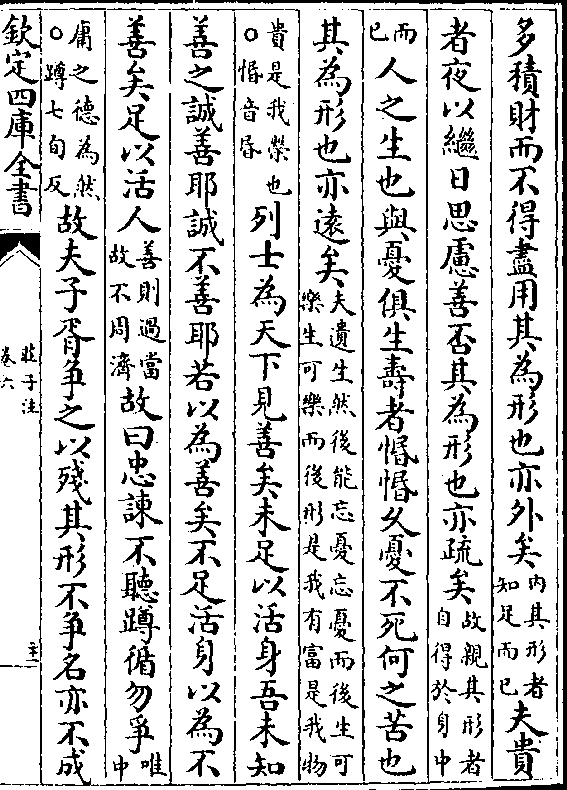 多積財而不得盡用其為形也亦外矣內其形者知足而已夫貴
者夜以繼日思慮善否其為形也亦疏矣故親其形者自得於身中
而已人之生也與憂俱生壽者惛惛久憂不死何之苦也
其為形也亦遠矣夫遺生然後能忘憂忘憂而後生可樂生可樂而後形是我有富是我物
貴是我榮也○惛音昏列士為天下見善矣未足以活身吾未知
善之誠善耶誠不善耶若以為善矣不足活身以為不
善矣足以活人善則過當故不周濟故曰忠諫不聽蹲循勿爭唯中
庸之德為然○蹲七旬反故夫子胥爭之以殘其形不爭名亦不成
欽定四庫全書
莊子注
卷六